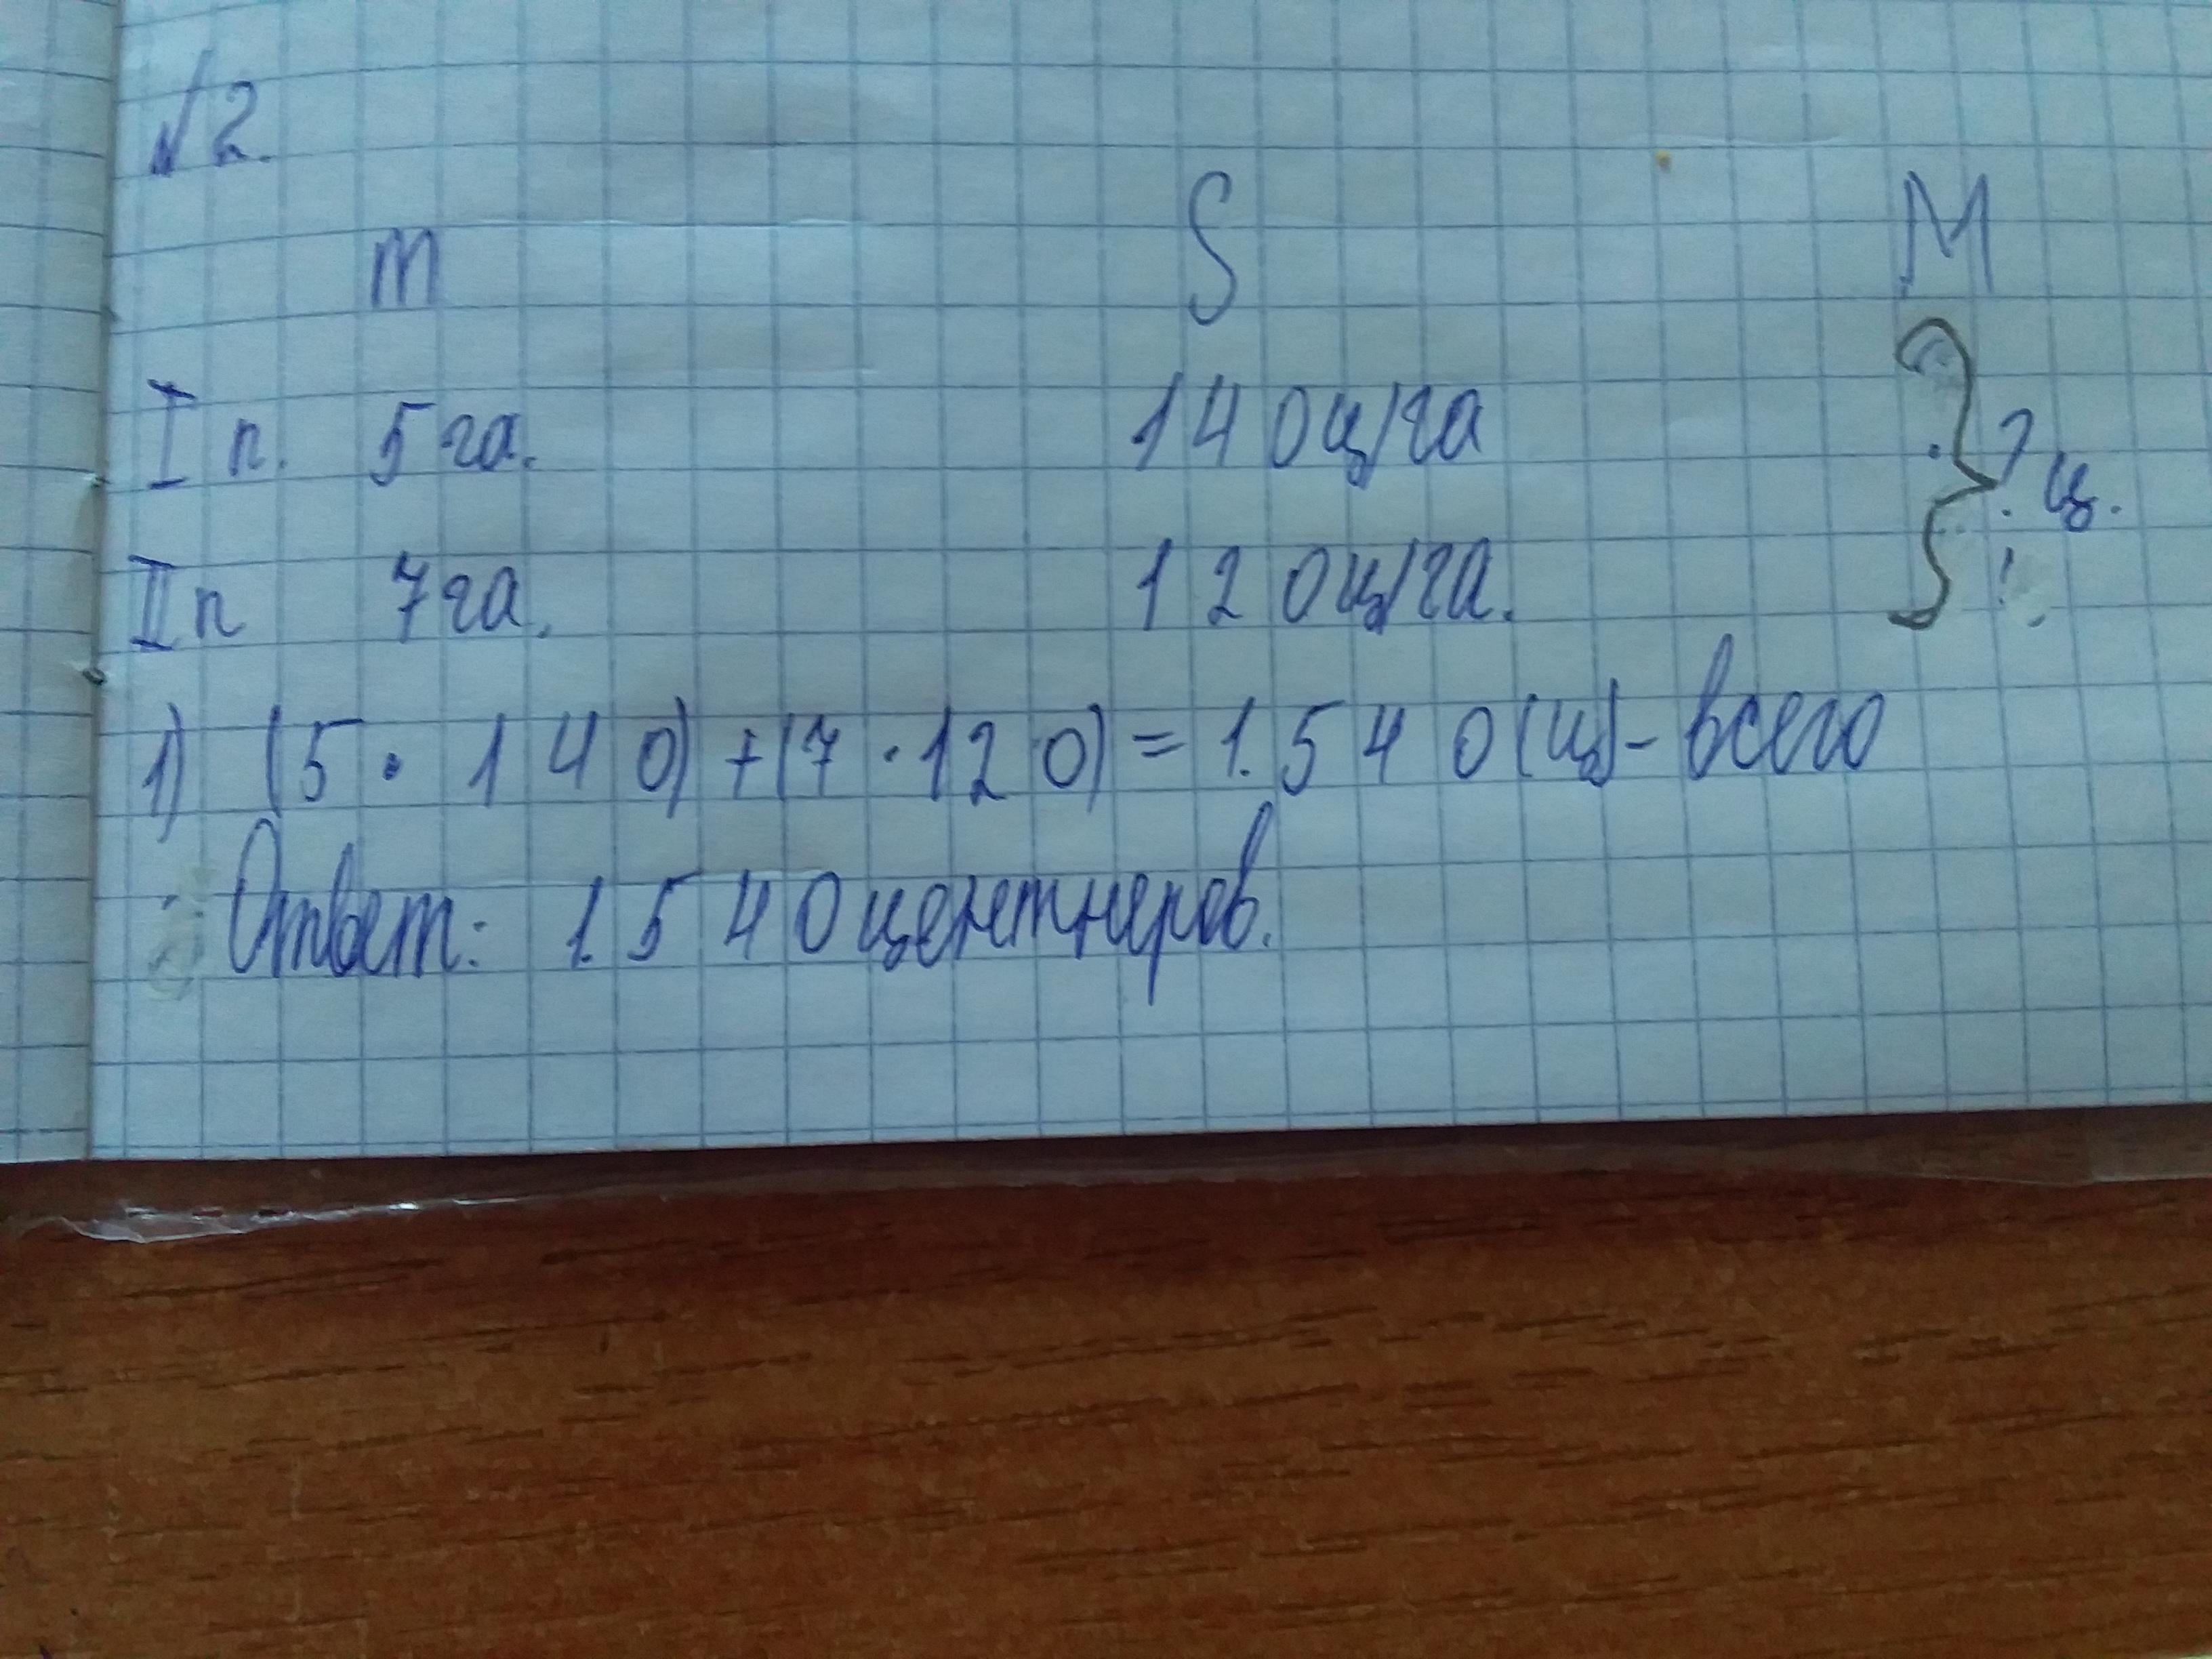 №2.
m S M
I п. 5га. 140ц/га ? ц.
II п 7га. 120ц/га.
1) (5 · 140)+(7 · 120)=1.540(ц)-всего
Ответ: 1.540центнеров.